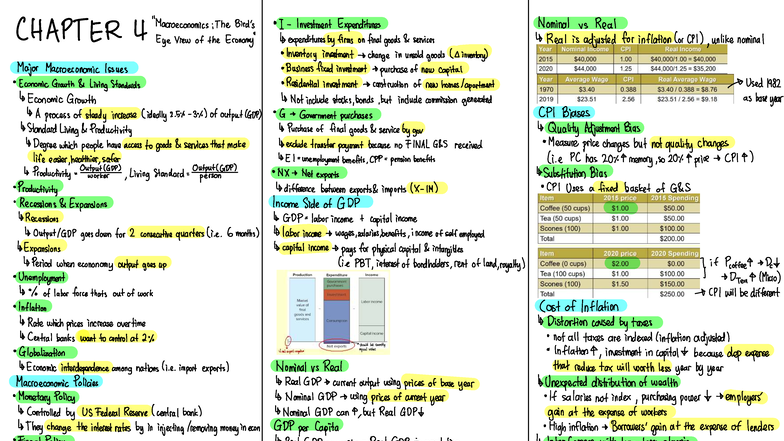 CHAPTER 4
"Macroeconomics: The Bird's
Eye View of the Economy"
Major Macroeconomic Issues
• Economic Growth & Living Standards
↳ Economic Growth
↳ A process of steady increase (ideally 2.5%-3%) of output (GDP)
↳ Standard Living & Productivity
↳ Degree which people have access to goods & services that make
life easier, healthier, safer
↳ Productivity = Output(GDP)/worker , Living Standard = Output(GDP)/person
• Productivity
• Recessions & Expansions
↳ Recessions
↳ Output/GDP goes down for 2 consecutive quarters (i.e. 6 months)
↳ Expansions
↳ Period when econonomy output goes up
• Unemployment
↳ % of labor force thats out of work
• Inflation
↳ Rate which prices increase overtime
↳ Central banks want to control at 2%
• Globalization
↳ Economic interdependence among nations (i.e. import exports)
Macroeconomic Policies
• Monetary Policy
↳ Controlled by US Federal Reserve (central bank)
↳ They change the interest rates by in injecting/removing money in econ
• I - Investment Expenditures
↳ expenditures by firms on final goods & services
↳ Inventory investment → change in unsold goods (Δ inventory)
↳ Business fixed investment → purchase of new capital
↳ Residential investment → contruction of new homes/apartment
↳ Not include stocks, bonds, but include commission generated
• G → Government purchases
↳ Purchase of final goods & service by gov
↳ exclude transfer payment because no FINAL G&S received
↳ EI = unemployment benefits, CPP = pension benefits
• NX → Net exports
↳ difference between exports & imports (X-IM)
Income Side of GDP
↳ GDP = labor income + capital income
↳ labor income → wages, salaries, benefits, income of self employed
↳ capital income → pays for physical capital & intangibles
(i.e PBT, interest of bondholders, rent of land, royalty)
Production Expenditure Income
Market value of final goods and services
Government purchases
Investment
Consumption
Net exports
Labor income
Capital income
Nominal vs Real
↳ Real GDP → current output using prices of base year
↳ Nominal GDP → using prices of current year
↳ Nominal GDP can ↑, but Real GDP ↓
GDP per Capita
Nominal vs Real
↳ Real is adjusted for inflation (or CPI), unlike nominal
Year Nominal Income CPI Real Income
2015 $40,000 1.00 $40,000/1.00 = $40,000
2020 $44,000 1.25 $44,000/1.25 = $35,200
Year Average Wage CPI Real Average Wage
1970 $3.40 0.388 $3.40 / 0.388 = $8.76
2019 $23.51 2.56 $23.51 / 2.56 = $9.18
→ Used 1982
as base year
CPI Biases
↳ Quality Adjustment Bias
• Measure price changes but not quality changes
(i.e PC has 20% ↑ memory, so 20% ↑ price → CPI ↑)
↳ Substitution Bias
• CPI Uses a fixed basket of G&S
Item 2015 price 2015 Spending
Coffee (50 cups) $1.00 $50.00
Tea (50 cups) $1.00 $50.00
Scones (100) $1.00 $100.00
Total $200.00
Item 2020 price 2020 Spending
Coffee (0 cups) $2.00 $0.00
Tea (100 cups) $1.00 $100.00
Scones (100) $1.50 $150.00
Total $250.00
if Pcoffee ↑ → Dc ↓
→ DTea ↑ (Micro)
↳ CPI will be different
Cost of Inflation
↳ Distortion caused by taxes
• not all taxes are indexed (inflation adjusted)
• Inflation ↑, investment in capital ↓ because dep expense
that reduce tax will worth less year by year
↳ Unexpected distribution of wealth
• If salaries not index, purchasing power ↓ → employers
gain at the expense of workers
• High inflation → Borrowers' gain at the expense of lenders